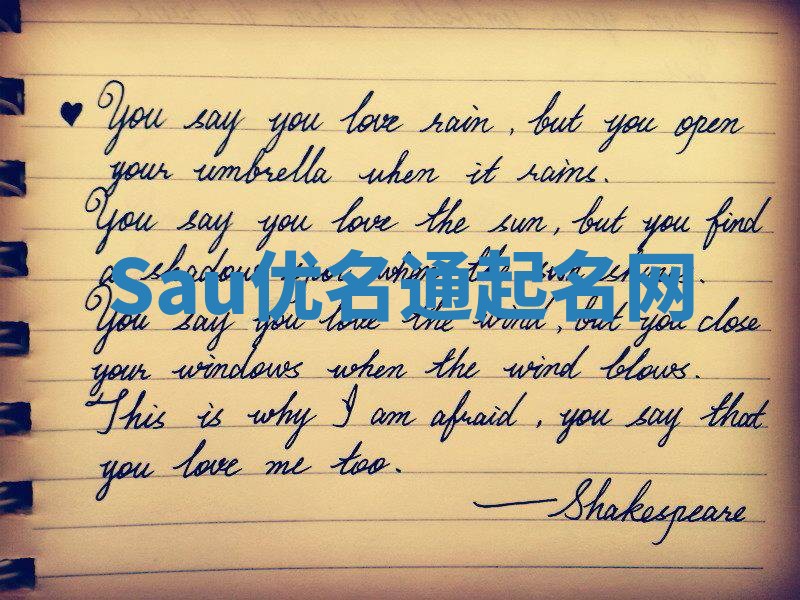 ♥ You say you love rain, but you open
your umbrella when it rains.
You say you love the sun, but you find
a shadow spot when the sun shines.
Sau优名通起名网
You say you love the wind, but you close
your windows when the wind blows.
This is why I am afraid, you say that
you love me too.
—Shakespeare